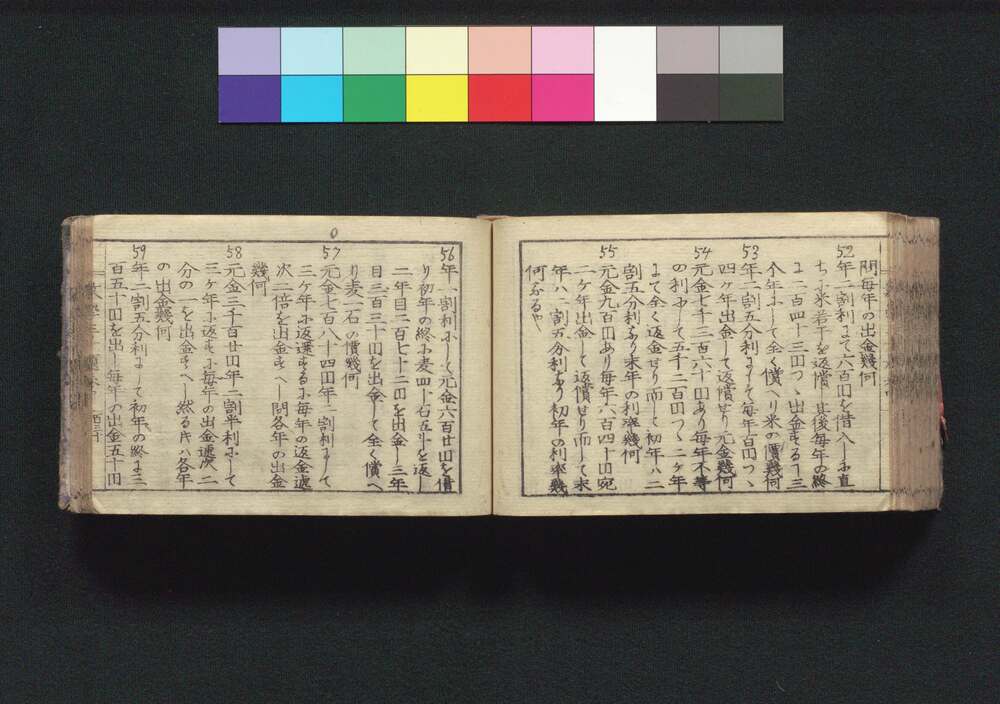 問毎年の出金幾何
52 年二割利にて六百円を借入しに直
ちに米若干を返償し其後毎年の終
に二百四十三円つゝ出金すること三
年にして全く償へり米の價幾何
53 年二割五分利にして毎年百円つゝ
四ヶ年出金して返償せり元金幾何
54 元金七千三百六十円あり毎年不等
の利にして五千二百円つゝ二ヶ年
にて全く返金せり而して初年ハ二
割五分利なり末年の利率幾何
55 元金九百円あり毎年六百四十円宛
二ヶ年出金して返償せり而して末
年ハ二割五分利なり初年の利率幾
何なるや
56 年一割利にして元金六百廿円を借
り初年の終に麦四十石五斗を返し
二年目二百七十二円を出金し三年
目三百三十円を出金して全く償へ
り麦一石の價幾何
57 元金七百八十四円年一割利にして
三ヶ年に返還するに毎年の返金逓
次二倍を出金すへし問各年の出金
幾何
58 元金三千百廿円年一割半利にして
三ヶ年に返すに毎年の出金逓次二
分の一を出金すへし然る時ハ各年
の出金幾何
59 年二割五分利にして初年の終に三
百五十円を出し毎年の出金五十円